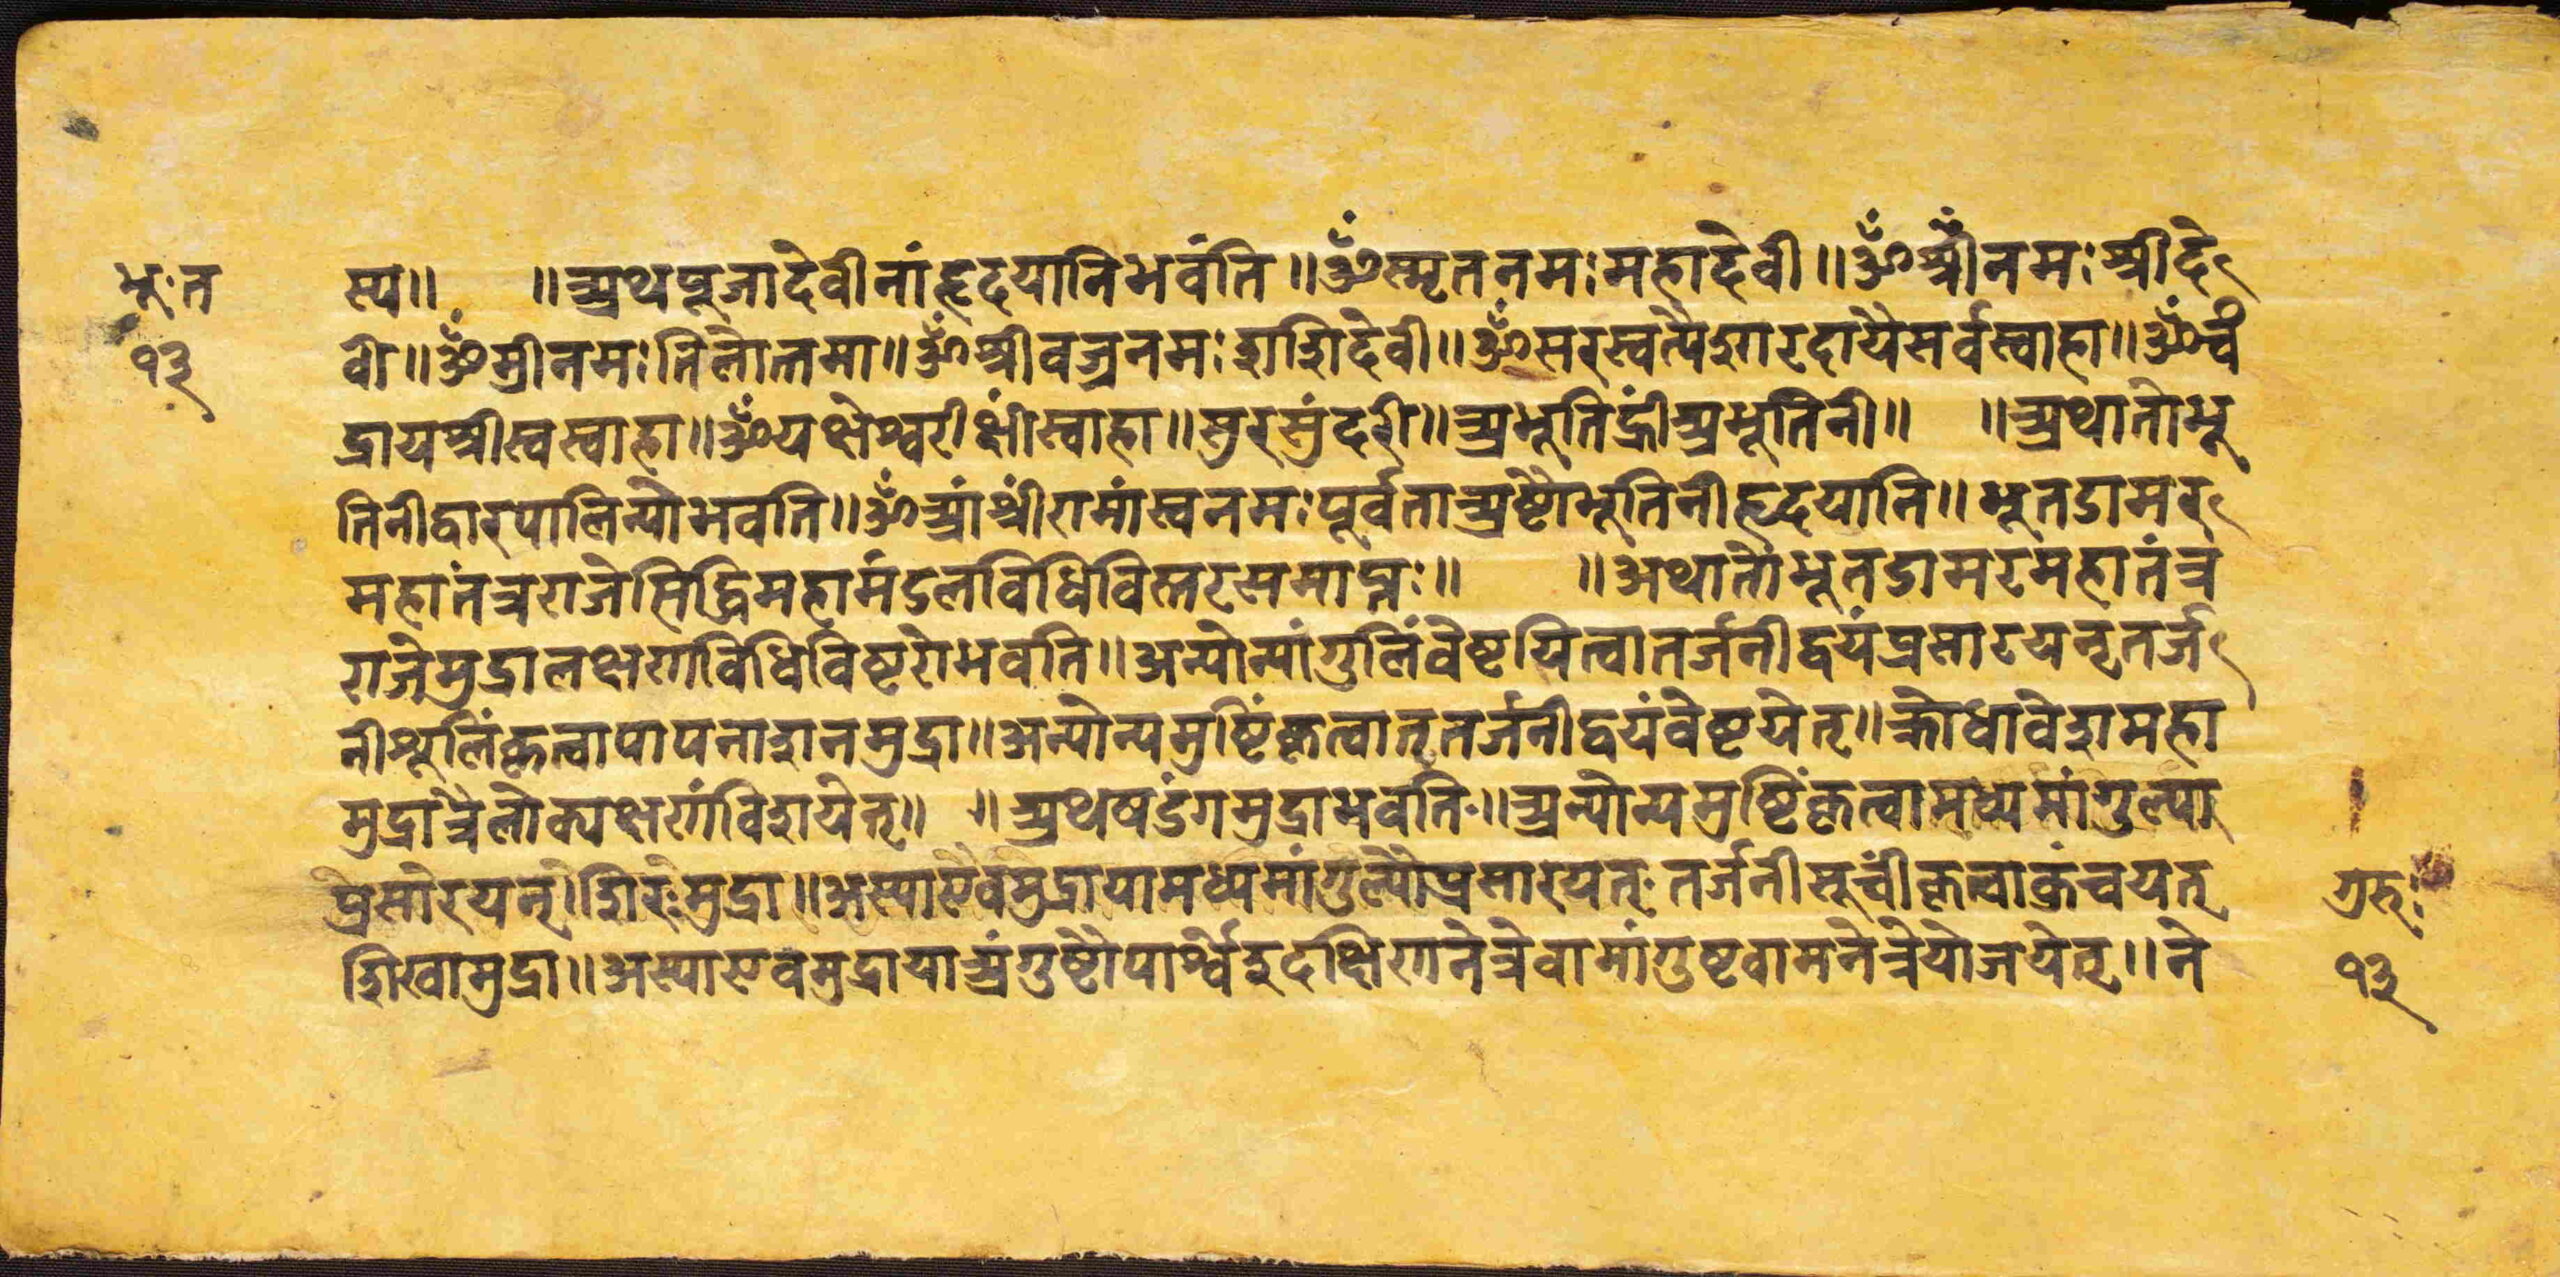 भूःत
१३
स्य॥ ॥अथपूजादेवीनांहृदयानिभवंति॥ॐस्मृतनमःमहादेवी॥ॐश्रींनमःश्रीदे
वी॥ॐम्रीनमःतिलोत्तमा॥ॐश्रीवज्रनमःशशिदेवी॥ॐसरस्वत्यैशारदायैसर्वस्वाहा॥ॐचं
द्रायश्रीस्वस्वाहा॥ॐयक्षेश्वरीक्षींस्वाहा॥सुरसुंदरी॥अभूतिह्रींअभूतिनी॥ ॥अथातोभू
तिनीद्वारपालिन्योभवति॥ॐआंश्रींरामांस्वनमःपूर्वताअष्टौभूतिनीहृदयानि॥भूतडामर
महातंत्रराजेसिद्धिमहामंडलविधिविस्तरसमाप्तः॥ ॥अथातोभूतडामरमहातंत्र
राजेमुद्रालक्षणविधिविष्टरोभवति॥अन्योन्यांगुलिंवेष्टयित्वातर्जनीद्वयंप्रसारयनृतर्ज
नीश्रूलिंकृत्वापापनाशनमुद्रा॥अन्योन्यमुष्टिंकृत्वातृतर्जनीद्वयंवेष्टयेतृ॥क्रोधावेशमहा
मुद्रात्रैलोक्यक्षणंविशयेतृ॥ ॥अथषडंगमुद्राभवति॥अन्योन्यमुष्टिंकृत्वामध्यमांगुल्या
प्रसारयनृशिरमुद्रा॥अस्याएवमुद्रायामध्यमांगुल्यौप्रसारयतृतर्जनीसूचींकृत्वाकुंचयतृ
शिखामुद्रा॥अस्याएवमुद्रायाअंगुष्टौपार्श्वेदक्षिणनेत्रेवामांगुष्टवामनेत्रेयोजयेतृ॥ने
गुरुः
१३